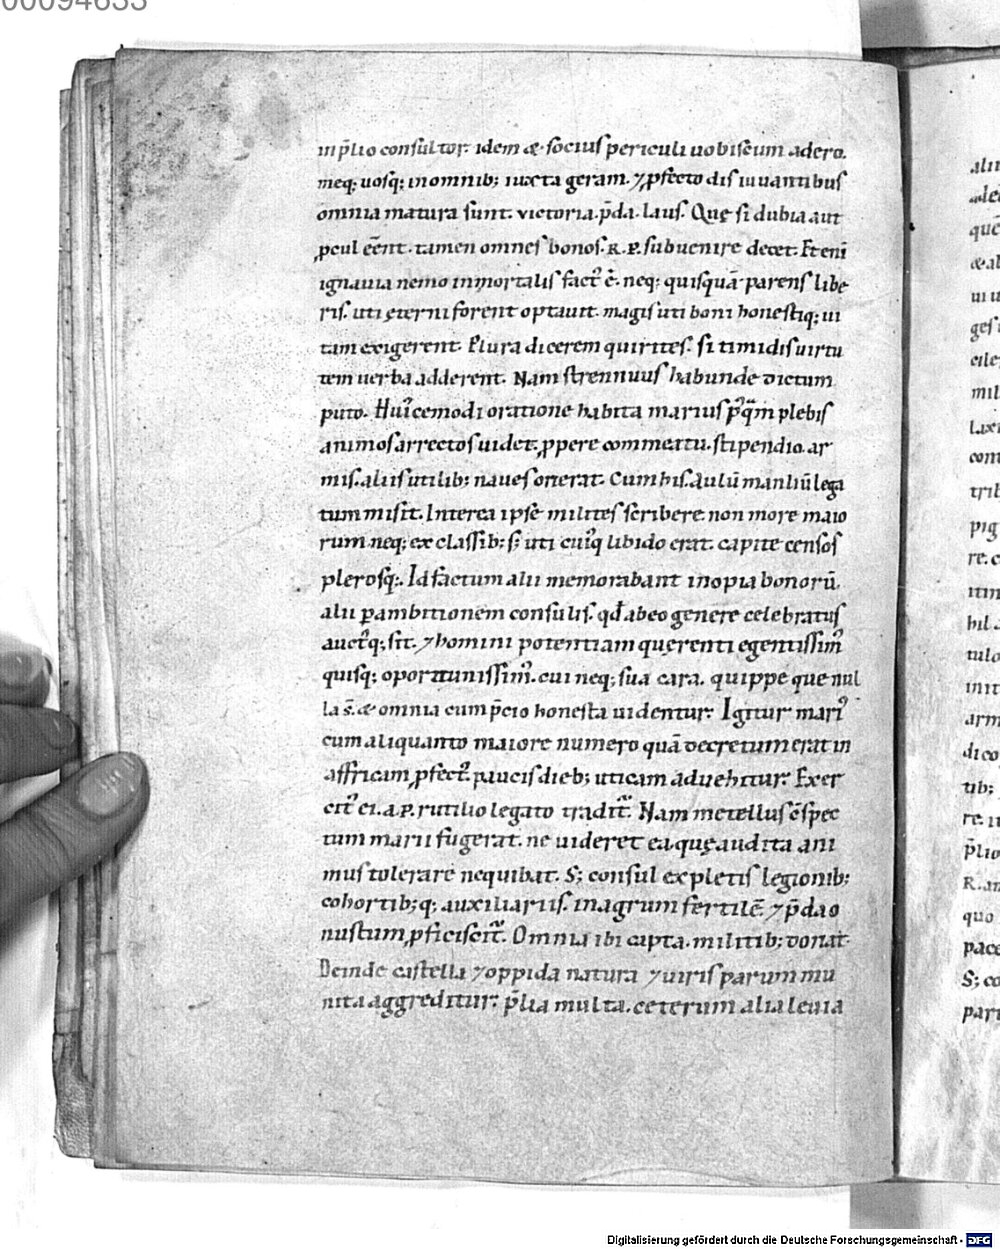 00094633
in p̄lio consultor. idem & socius periculi uobiscum adero.
meq; uosq; in omnib; iuxta geram. ⁊ ꝓfecto dis iuuantibus
omnia matura sunt. victoria. p̄da. laus. Quę si dubia aut
ꝓcul eēnt. tamen omnes bonos. R. P. subuenire decet. Etenī
ignauia nemo inmortalis fact᷒ ē. neq; quisquā parens libe
ris. uti ęterni forent optauit. magis uti boni honestiq; ui
tam exigerent. Plura dicerem quirites. si timidis uirtu
tem uerba adderent. Nam strennuus habunde dictum
puto. Huiꝰcemodi oratione habita marius p᷒q̄m plebis
animos arrectos uidet. ꝓpere commeatu. stipendio. ar
mis. aliis utilib; naues onerat. Cum his. Aulū manliū lega
tum misit. Interea ipse milites scribere non more maio
rum neq; ex classib; s; uti cuiꝰq libido erat. capite censos
plerosq;. Id factum alii memorabant inopia bonorū.
alii ꝑ ambitionem consulis. qđ ab eo genere celebratus
auctꝰq; sit. ⁊ homini potentiam querenti egentissimꝰ
quisq; oportunissimꝰ. cui neq; sua cara. quippe que nul
la s̄. & omnia cum p̄cio honesta uidentur. Igitur mariꝰ
cum aliquanto maiore numero quā decretum erat in
affricam ꝓfectꝰ paucis dieb; uticam aduehitur. Exer
citꝰ ei. a. P. rutilio legato tradit᷒. Nam metellus ꝯspec
tum marii fugerat. ne uideret ea quę audita ani
mus tolerare nequibat. S; consul expletis legionib;
cohortib;q; auxiliariis. in agrum fertilē ⁊ p̄da o
nustum ꝓficiscit᷒. Omnia ibi capta. militib; donat.
Deinde castella ⁊ oppida natura ⁊ uiris parum mu
nita aggreditur. p̄lia multa. ceterum alia leuia
Digitalisierung gefördert durch die Deutsche Forschungsgemeinschaft - DFG